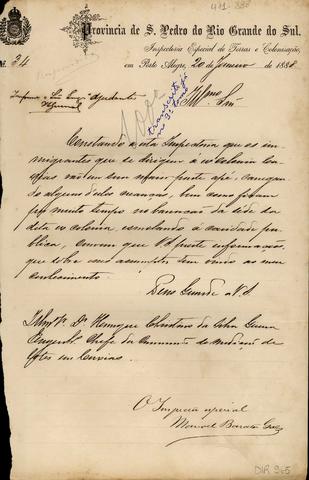 471-888
Provincia de S. Pedro do Rio Grande do Sul.
Inspectoria Especial de Terras e Colonisação,
em Porto Alegre, 20 de Janeiro de 1888
Nº 34
Informe o Sr. Ajudante
Illmo. Snr.
transcripta
Constando a esta Inspectoria que os im-
migrantes que se dirigem a ex colonia Ca-
xias vão em sem maior parte a pé, carregan-
do alguns delles creanças, bem como ficam
por muito tempo no barracão da séde da
dita ex colonia, esmolando á caridade pu-
blica, convem que VSª preste informações,
que sobre esse assumpto tem vindo ao meu
conhecimento.
Deus Guarde a V. S.
Illmo Sr Dr Henrique Christino da Silva
Engenhº Chefe da Commissão de Medição de
lotes em Caxias.
O Inspector especial
Manoel Barata Góes
DIR 965